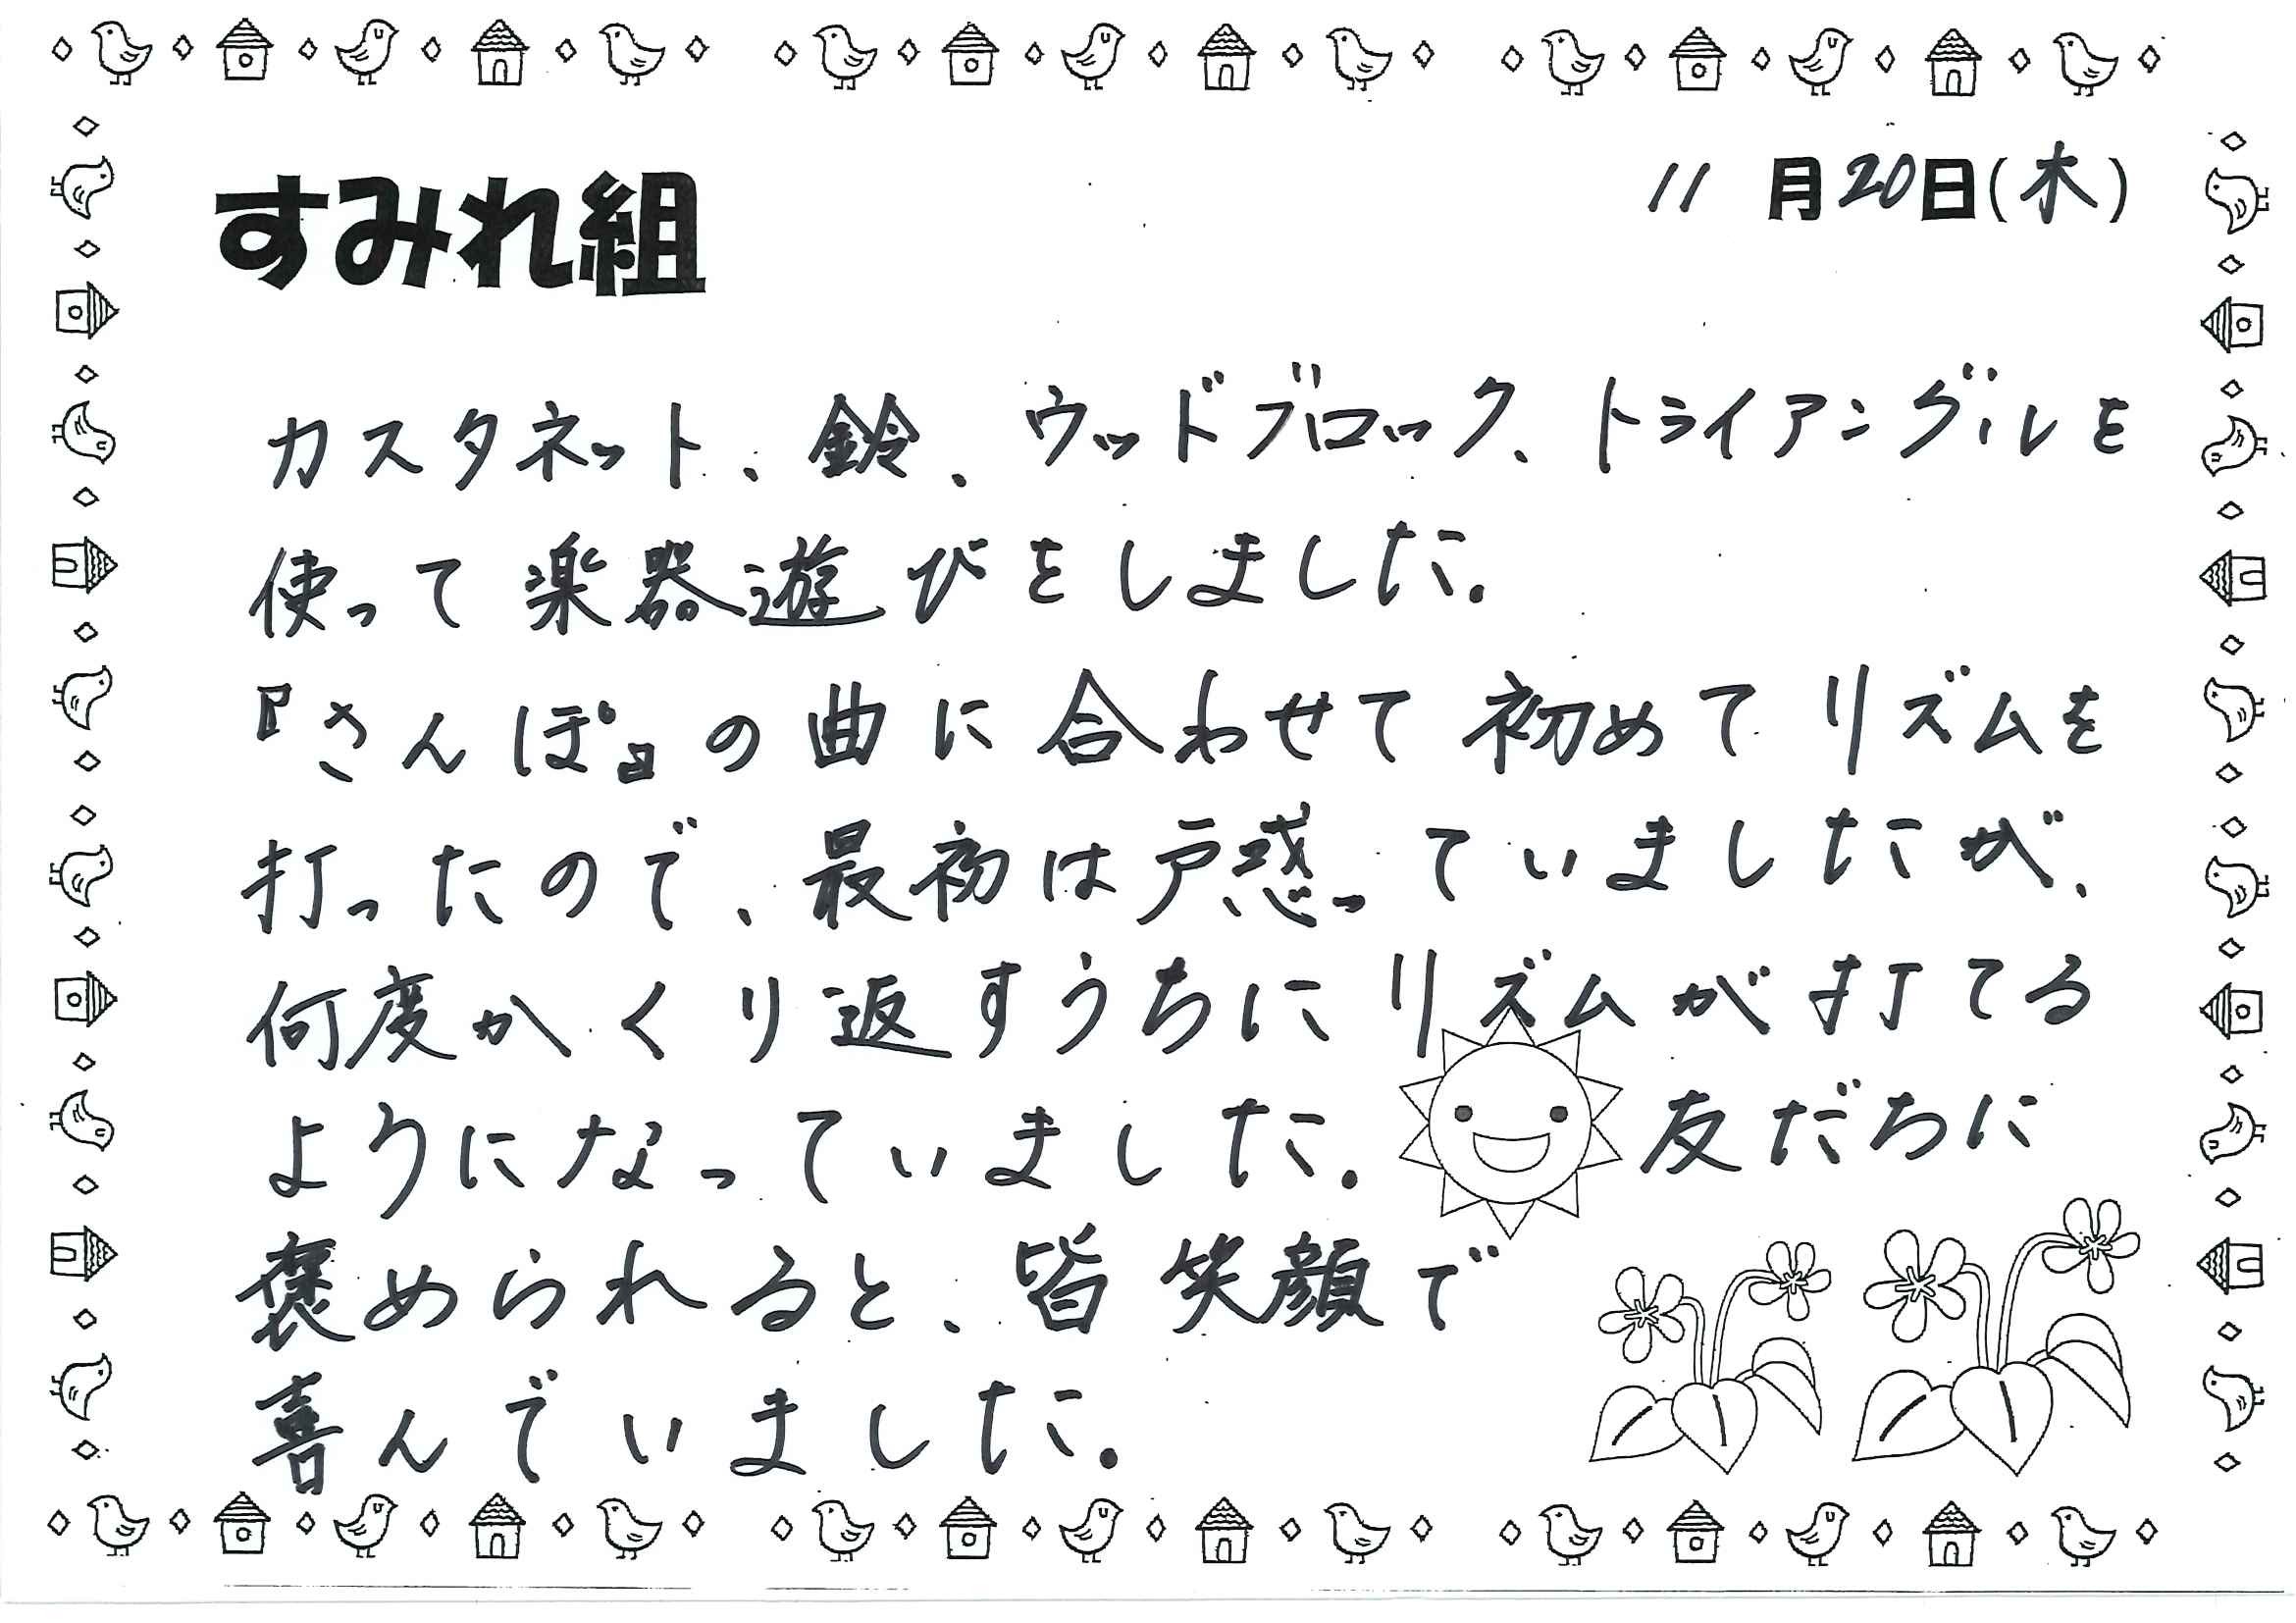 すみれ組
11月20日(木)
カスタネット、鈴、ウッドブロック、トライアングルを
使って楽器遊びをしました。
『さんぽ』の曲に合わせて初めてリズムを
打ったので、最初は戸惑っていましたが、
何度かくり返すうちにリズムが打てる
ようになっていました。友だちに
褒められると、皆笑顔で
喜んでいました。